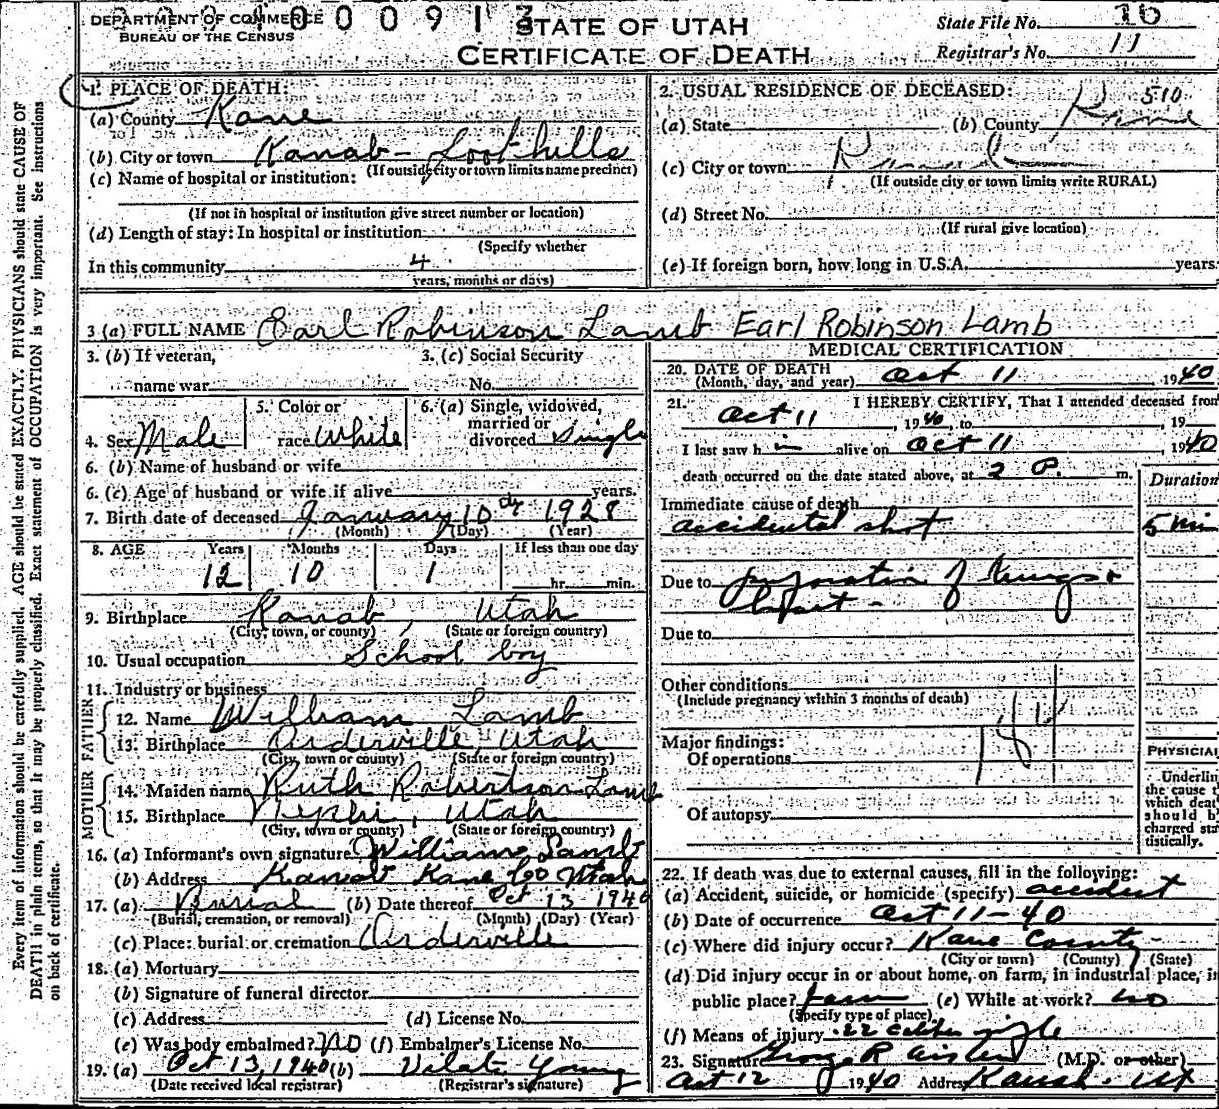 DEPARTMENT OF COMMERCE
BUREAU OF THE CENSUS
0 0 9 1 3
STATE OF UTAH
CERTIFICATE OF DEATH
State File No.
Registrar's No. 11
Every item of information should be carefully supplied. AGE should be stated EXACTLY. PHYSICIANS should state CAUSE OF
DEATH in plain terms, so that it may be properly classified. Exact statement of OCCUPATION is very important. See instructions
on back of certificate.
1. PLACE OF DEATH:
(a) County Kane
(b) City or town Kanab - Foothills
(If outside city or town limits name precinct)
(c) Name of hospital or institution:
(If not in hospital or institution give street number or location)
(d) Length of stay: In hospital or institution
(Specify whether
In this community 4
years, months or days)
2. USUAL RESIDENCE OF DECEASED:
510
(a) State (b) County Kane
(c) City or town
(If outside city or town limits write RURAL)
(d) Street No.
(If rural give location)
(e) If foreign born, how long in U.S.A. years
3 (a) FULL NAME Earl Robinson Lamb Earl Robinson Lamb
3. (b) If veteran, 3. (c) Social Security
name war No.
4. Sex Male 5. Color or race White 6. (a) Single, widowed, married or divorced Single
6. (b) Name of husband or wife
6. (c) Age of husband or wife if alive years.
7. Birth date of deceased January 10 1928
(Month) (Day) (Year)
8. AGE Years Months Days If less than one day
12 10 1 hr. min.
9. Birthplace Kanab, Utah
(City, town, or county) (State or foreign country)
10. Usual occupation School boy
11. Industry or business
FATHER
12. Name William Lamb
13. Birthplace Orderville, Utah
(City, town or county) (State or foreign country)
MOTHER
14. Maiden name Ruth Robertson Lamb
15. Birthplace Nephi, Utah
(City, town or county) (State or foreign country)
16. (a) Informant's own signature William Lamb
(b) Address Kanab Kane Co Utah
17. (a) Burial (b) Date thereof Oct 13 1940
(Burial, cremation, or removal) (Month) (Day) (Year)
(c) Place: burial or cremation Orderville
18. (a) Mortuary
(b) Signature of funeral director
(c) Address (d) License No.
(e) Was body embalmed? No (f) Embalmer's License No.
19. (a) Oct 13, 1940 (b) Vilate Young
(Date received local registrar) (Registrar's signature)
MEDICAL CERTIFICATION
20. DATE OF DEATH
(Month, day, and year) Oct 11 1940
21. I HEREBY CERTIFY, That I attended deceased from
Oct 11, 1940, to , 19
I last saw h im alive on Oct 11 1940
death occurred on the date stated above, at 2 P. m.
Duration
Immediate cause of death
accidental shot 5 min
Due to perforation of lungs +
heart -
Due to
Other conditions
(Include pregnancy within 3 months of death)
Major findings:
Of operations
184
Of autopsy
PHYSICIAN
Underline
the cause t
which deat
should b
charged sta
tistically.
22. If death was due to external causes, fill in the following:
(a) Accident, suicide, or homicide (specify) accident
(b) Date of occurrence Oct 11-40
(c) Where did injury occur? Kane County
(City or town) (County) (State)
(d) Did injury occur in or about home, on farm, in industrial place, in
public place? farm (e) While at work? no
(Specify type of place)
(f) Means of injury .22 caliber rifle
23. Signature George R Aiken (M.D. or other)
Oct 12 1940 Address Kanab. Ut